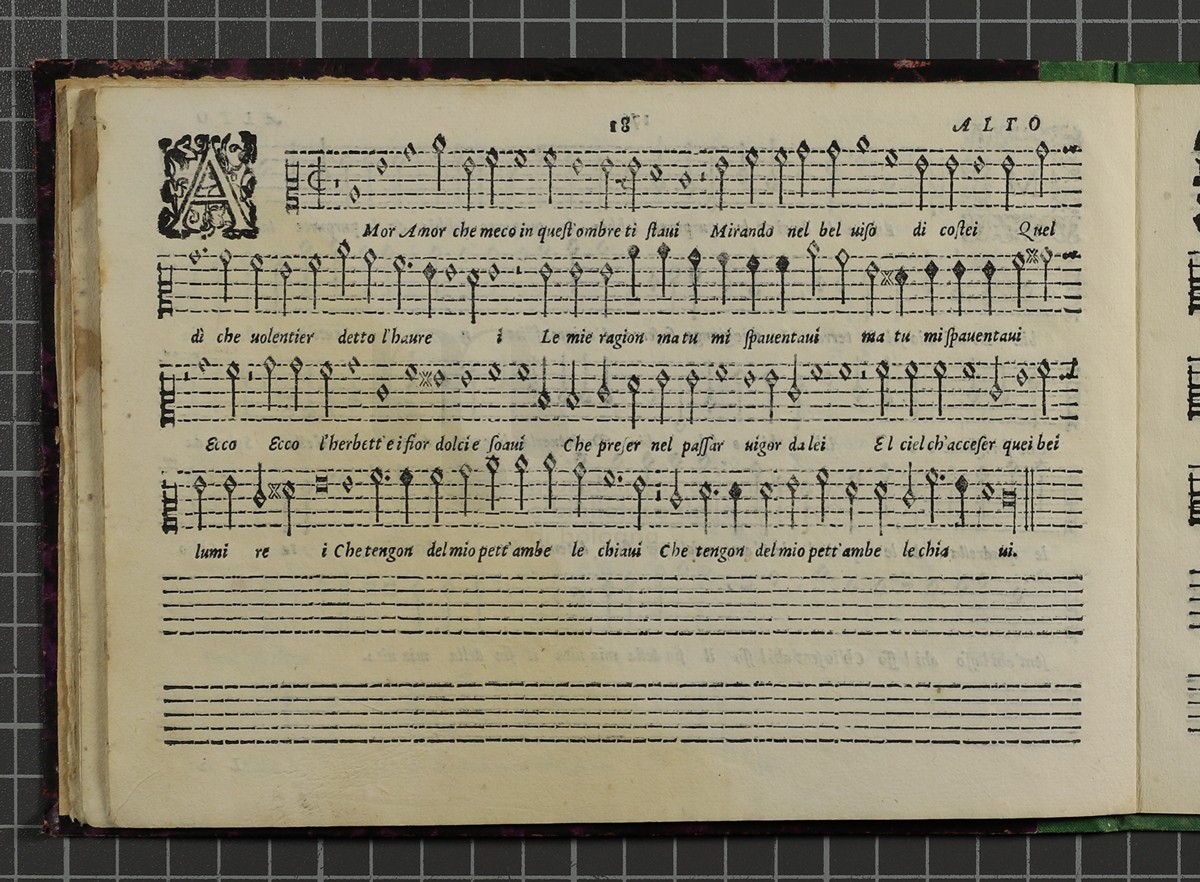 18
ALTO
AMor Amor che meco in queſt'ombre ti ſtaui Mirando nel bel uiſo di coſtei Quel
dì che uolentier detto l'haure i Le mie ragion ma tu mi ſpauentaui ma tu mi ſpauentaui
Ecco Ecco l'herbett'e i fior dolci e ſoaui Che preſer nel paſſar uigor da lei El ciel ch'acceſer quei bei
lumi re i Che tengon del mio pett'ambe le chiaui Che tengon del mio pett'ambe le chia ui.